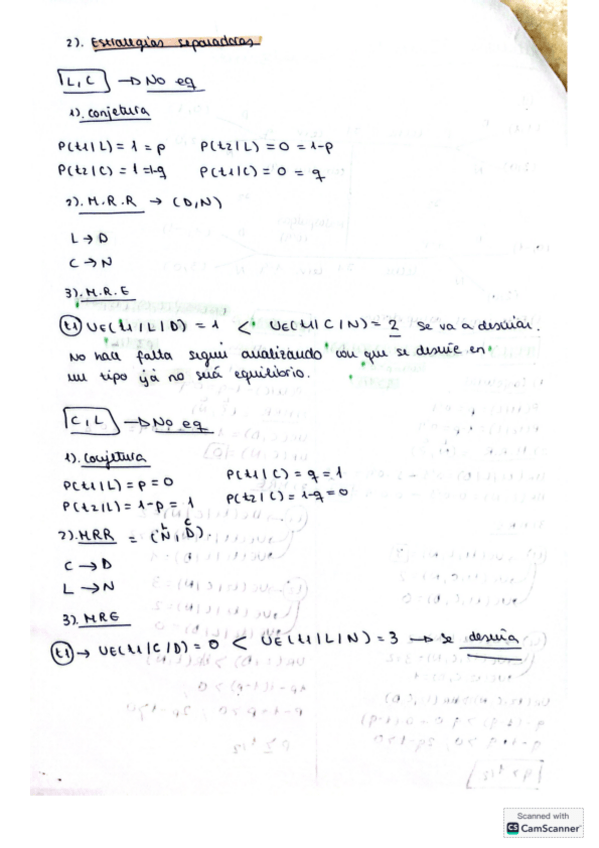 2). Estrategias separadoras
L, C → No eq
1). Conjetura
P(t1/L) = 1 = p   P(t2/L) = 0 = 1-p
P(t2/C) = 1 = 1-q   P(t1/C) = 0 = q
2). M.R.R → (D,N)
L → D
C → N
3). M.R.E
t1 UE(t1/L/D) = 1 < UE(t1/C/N) = 2 Se va a desviar.
No hace falta seguir analizando con que se desvíe en
un tipo ya no será equilibrio.
C, L → No eq
1). Conjetura
P(t1/L) = p = 0   P(t1/C) = q = 1
P(t2/L) = 1-p = 1   P(t2/C) = 1-q = 0
L C
2). MRR = (N, D).
C → D
L → N
3). MRE
t1 → UE(t1/C/D) = 0 < UE(t1/L/N) = 3 → se desvia
Scanned with
CS CamScanner